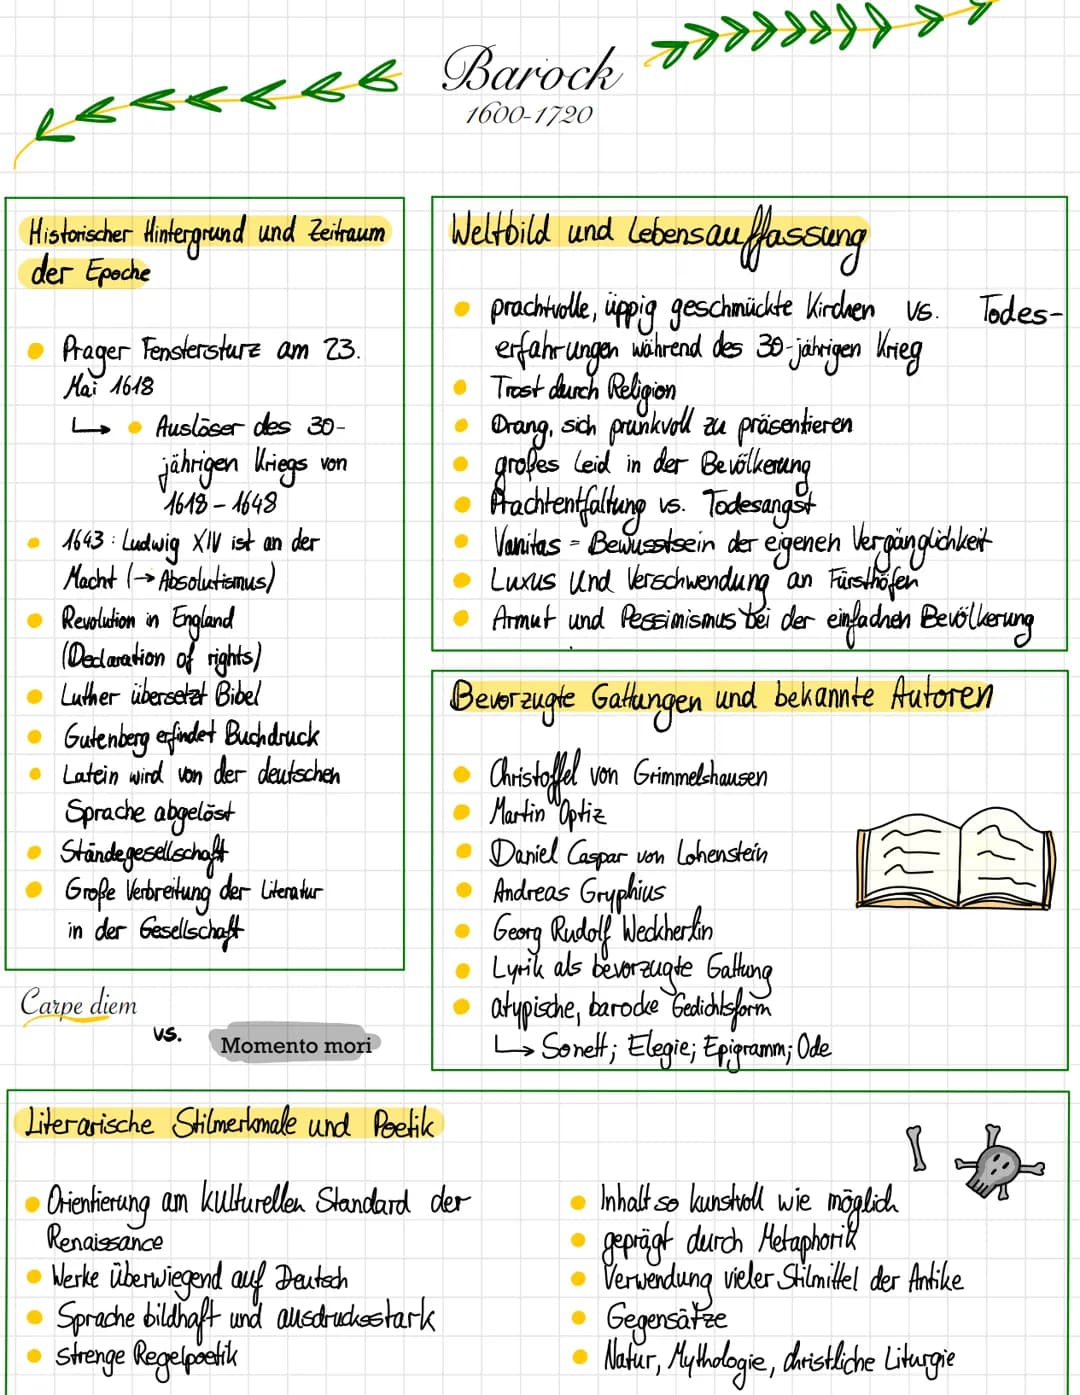 Barock
1600-1720
Historischer Hintergrund und Zeitraum
der Epoche
Prager Fenstersturz am 23.
Mai 1618
↳ • Auslöser des 30-
jährigen Kriegs von
1618 – 1648
1643 : Ludwig XIV ist an der
Macht (→ Absolutismus)
Revolution in England
(Declaration of rights)
Luther übersetzt Bibel
Gutenberg erfindet Buchdruck
Latein wird von der deutschen
Sprache abgelöst
Ständegesellschaft
Große Verbreitung der Literatur
in der Gesellschaft
Carpe diem
vs.
Momento mori
Weltbild und Lebensauffassung
prachtvolle, üppig geschmückte Kirchen vs. Todes-
erfahrungen während des 30-jährigen Krieg
Trost durch Religion
Drang, sich prunkvoll zu präsentieren
großes Leid in der Bevölkerung
Prachtentfaltung vs. Todesangst
Vanitas = Bewusstsein der eigenen Vergänglichkeit
Luxus und Verschwendung an Fürsthöfen
Armut und Pessimismus bei der einfachen Bevölkerung
Bevorzugte Gattungen und bekannte Autoren
Christoffel von Grimmelshausen
Martin Optiz
Daniel Caspar von Lohenstein
Andreas Gryphius
Georg Rudolf Weckherlin
Lyrik als bevorzugte Gattung
atypische, barocke Gedichtsform
↳ Sonett; Elegie; Epigramm; Ode
Literarische Stilmerkmale und Poetik
Orientierung am kulturellen Standard der
Renaissance
Werke überwiegend auf Deutsch
Sprache bildhaft und ausdrucksstark
strenge Regelpoetik
Inhalt so kunstvoll wie möglich
geprägt durch Metaphorik
Verwendung vieler Stilmittel der Antike
Gegensätze
Natur, Mythologie, christliche Liturgie